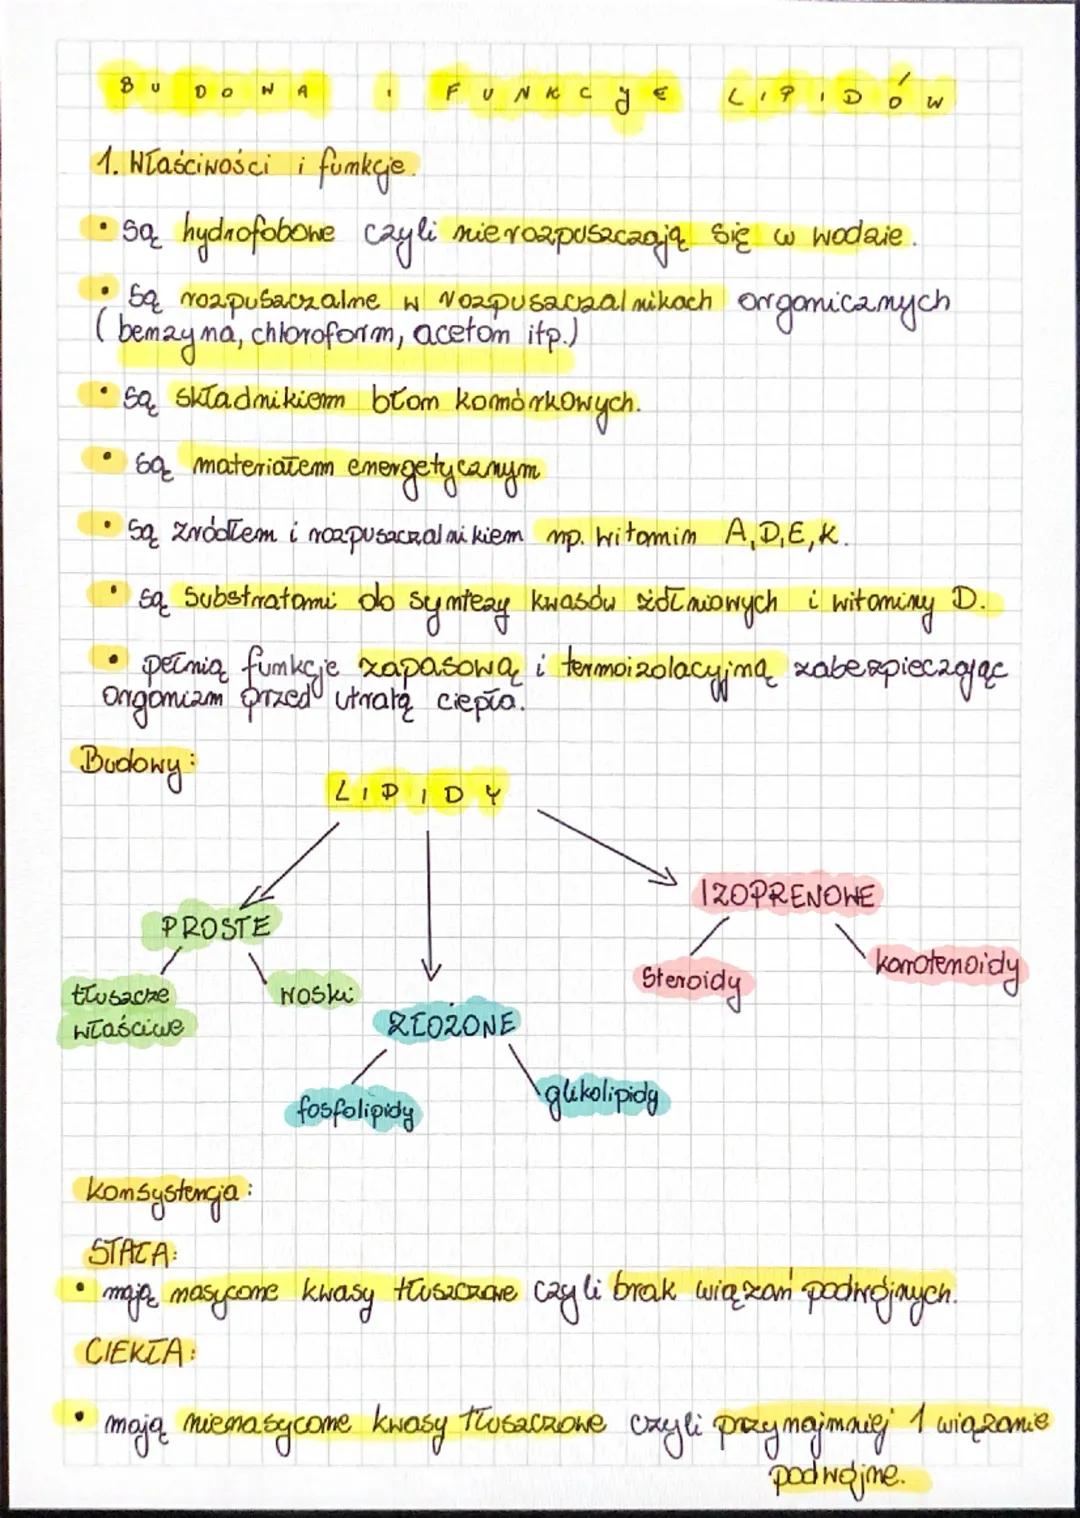 BUDOWA I FUNKCJE LIPIDÓW
1. Właściwości i funkcje.
• są hydrofobowe czyli nierozpuszczają się w wodzie.
• są rozpuszczalne w rozpuszczalnikach organicznych
(benzyna, chloroform, aceton itp.)
• są składnikiem błon komórkowych.
• są materiałem energetycznym
• są źródłem i rozpuszczalnikiem np. witamin A,D,E,K.
• są substratami do syntezy kwasów żółniowych i witaminy D.
• pełnią funkcje zapasową i termoizolacyjną zabezpieczając
organizm przed utratą ciepła.
Budowy:
LIPIDY
IZOPRENOWE
PROSTE
steroidy
karotenoidy
tłuszcze
właściwe
woski
ZŁOŻONE
fosfolipidy
glikolipidy
konsystencja:
STAŁA:
• mają nasycone kwasy tłuszczowe czyli brak wiązań podwójnych.
CIEKŁA:
• mają nienasycone kwasy tłuszczowe czyli przynajmniej 1 wiązanie
podwójne.